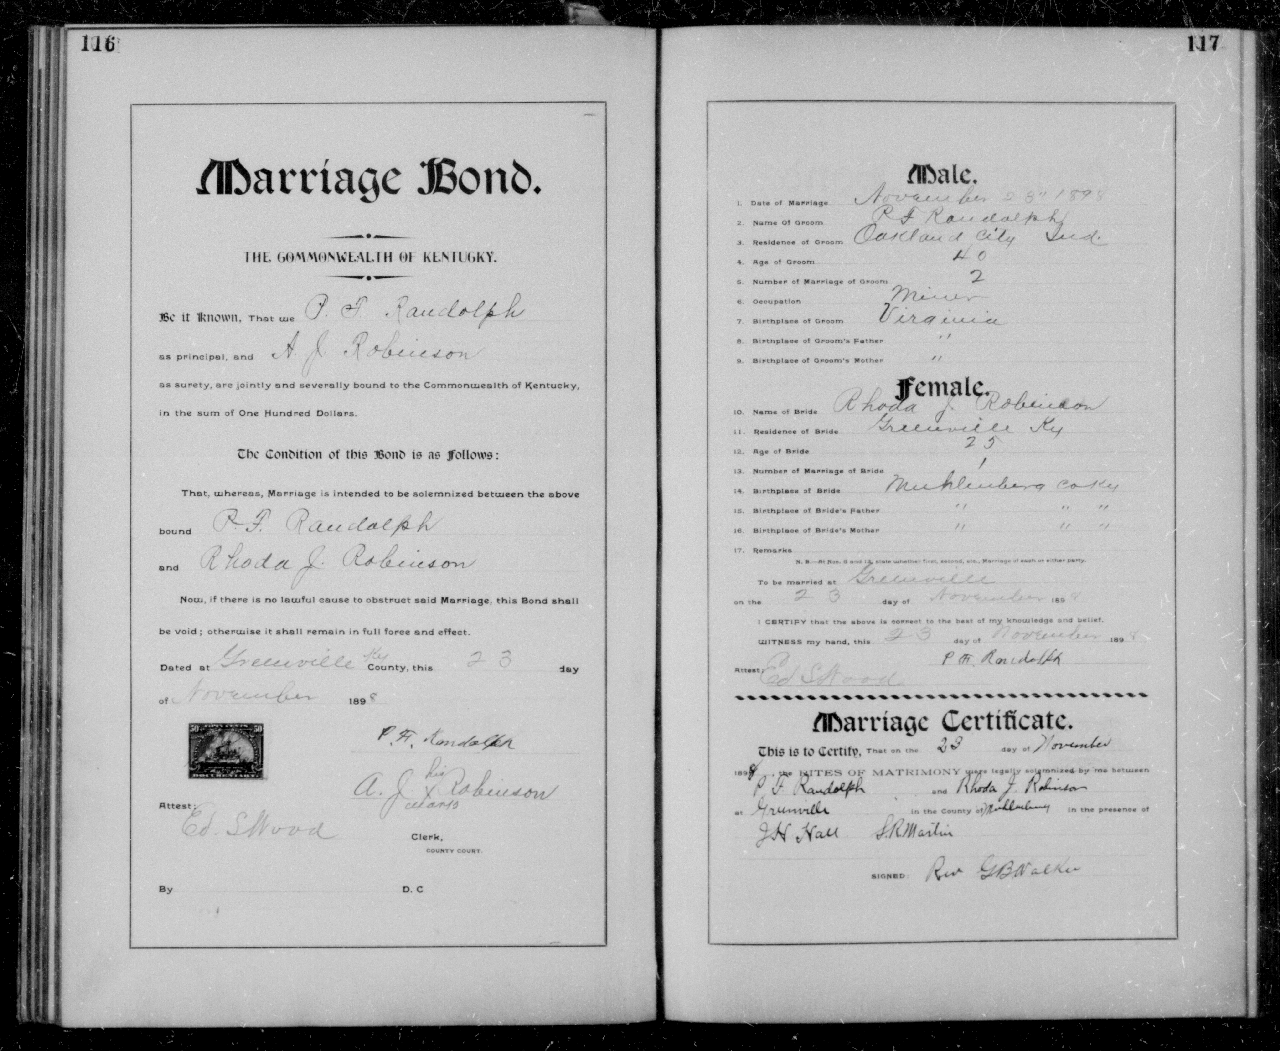 116
Marriage Bond.
THE COMMONWEALTH OF KENTUCKY.
Be it Known, That we P. F. Randolph
as principal, and A J Robinson
as surety, are jointly and severally bound to the Commonwealth of Kentucky,
in the sum of One Hundred Dollars.
The Condition of this Bond is as Follows:
That, whereas, Marriage is intended to be solemnized between the above
bound P. F. Randolph
and Rhoda J. Robinson
Now, if there is no lawful cause to obstruct said Marriage, this Bond shall
be void; otherwise it shall remain in full force and effect.
Dated at Greenville Ky County, this 23 day
of November 1898
50 FIFTY CENTS 50
DOCUMENTARY
P. F. Randolph
his
A. J. X Robinson
mark
Attest:
Ed. S Wood
Clerk,
COUNTY COURT.
By D. C
117
Male.
1. Date of Marriage November 23" 1898
2. Name Of Groom P F Randolph
3. Residence of Groom Oakland City Ind.
4. Age of Groom 40
5. Number of Marriage of Groom 2
6. Occupation Miner
7. Birthplace of Groom Virginia
8. Birthplace of Groom's Father "
9. Birthplace of Groom's Mother "
Female.
10. Name of Bride Rhoda J. Robinson
11. Residence of Bride Greenville Ky
12. Age of Bride 25
13. Number of Marriage of Bride 1
14. Birthplace of Bride Muhlenberg Co Ky
15. Birthplace of Bride's Father " " "
16. Birthplace of Bride's Mother " " "
17. Remarks
N. B.—At Nos. 5 and 13, state whether first, second, etc., Marriage of each or either party.
To be married at Greenville
on the 23 day of November 1898
I CERTIFY that the above is correct to the best of my knowledge and belief.
WITNESS my hand, this 23 day of November 1898
P. F. Randolph
Attest: Ed S Wood
Marriage Certificate.
This is to Certify, That on the 23 day of November
1898, the RITES OF MATRIMONY were legally solemnized by me between
P F Randolph and Rhoda J. Robinson
at Greenville in the County of Muhlenberg in the presence of
J H Hall S R Martin
SIGNED: Rev G B Walker